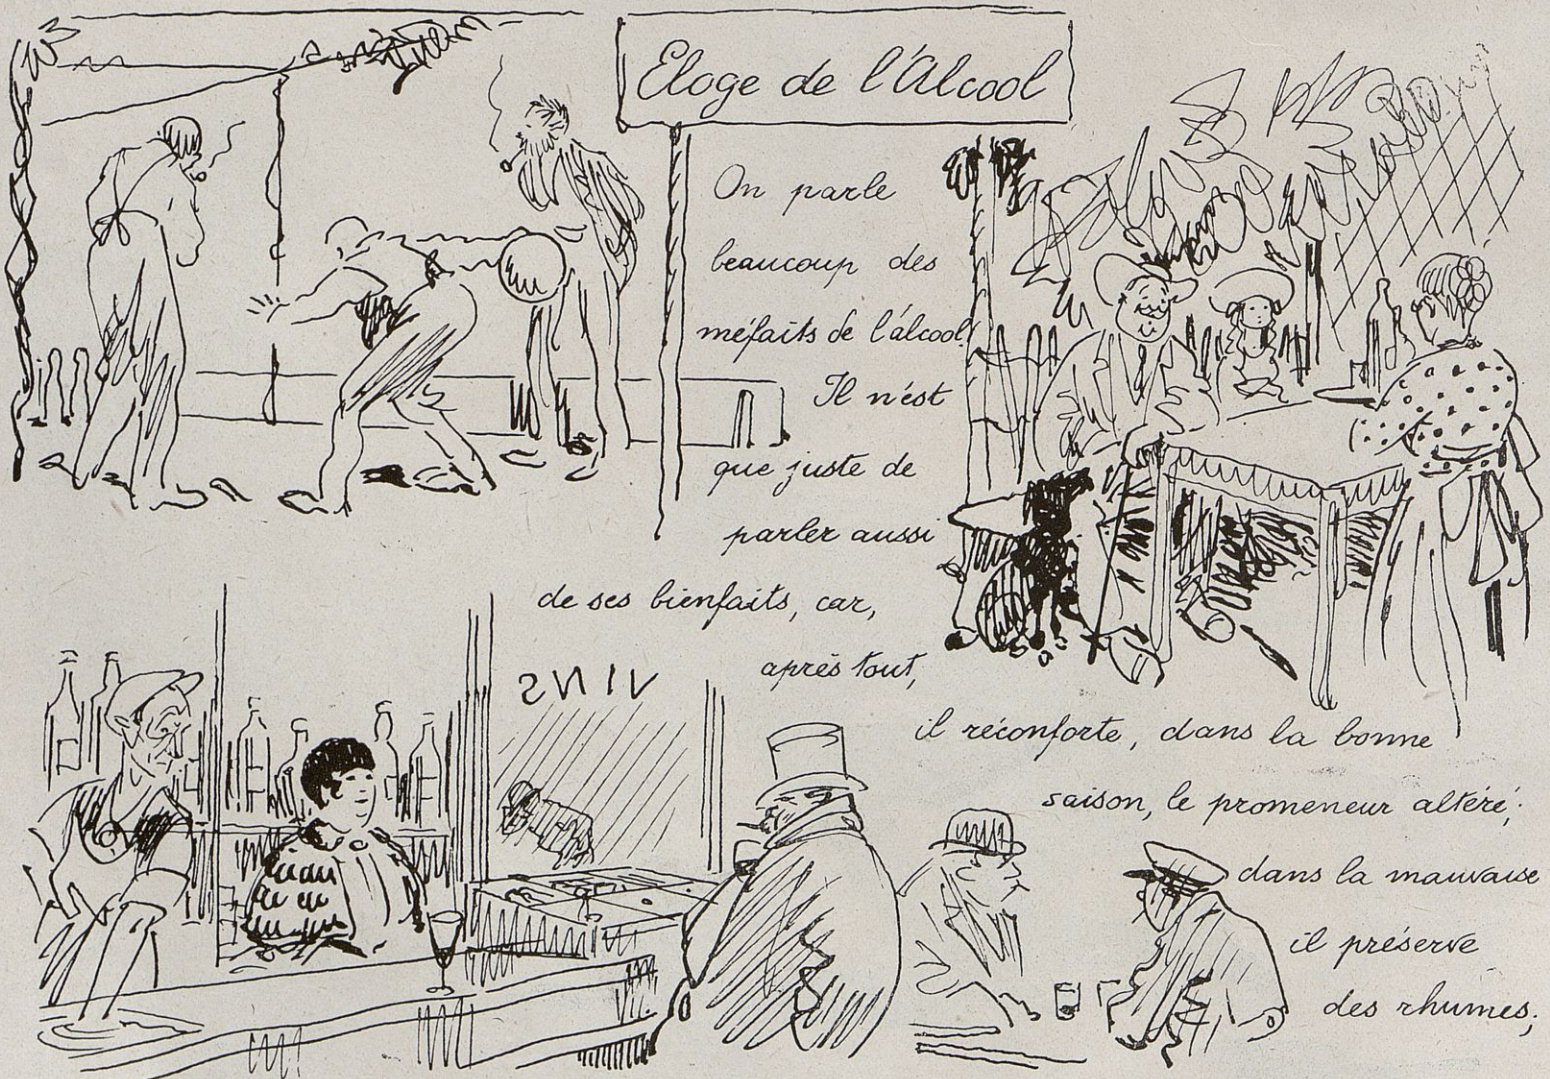 Eloge de l'Alcool
On parle
beaucoup des
méfaits de l'alcool,
Il n'est
que juste de
parler aussi
de ses bienfaits, car,
après tout,
il réconforte, dans la bonne
saison, le promeneur altéré;
dans la mauvaise
il préserve
des rhumes;
VINS